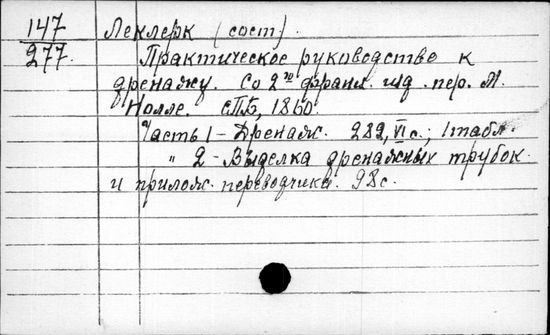 147 Леклерк (сост).
277. Практическое руководство к
дренажу. Со 2го франц. изд. пер. М.
Нолле. СПб, 1860.
Часть 1 - Дренаж. 282, VI с.; 1 табл.
" 2 - Выделка дренажных трубок
и прилож. переводчика. 98 с.